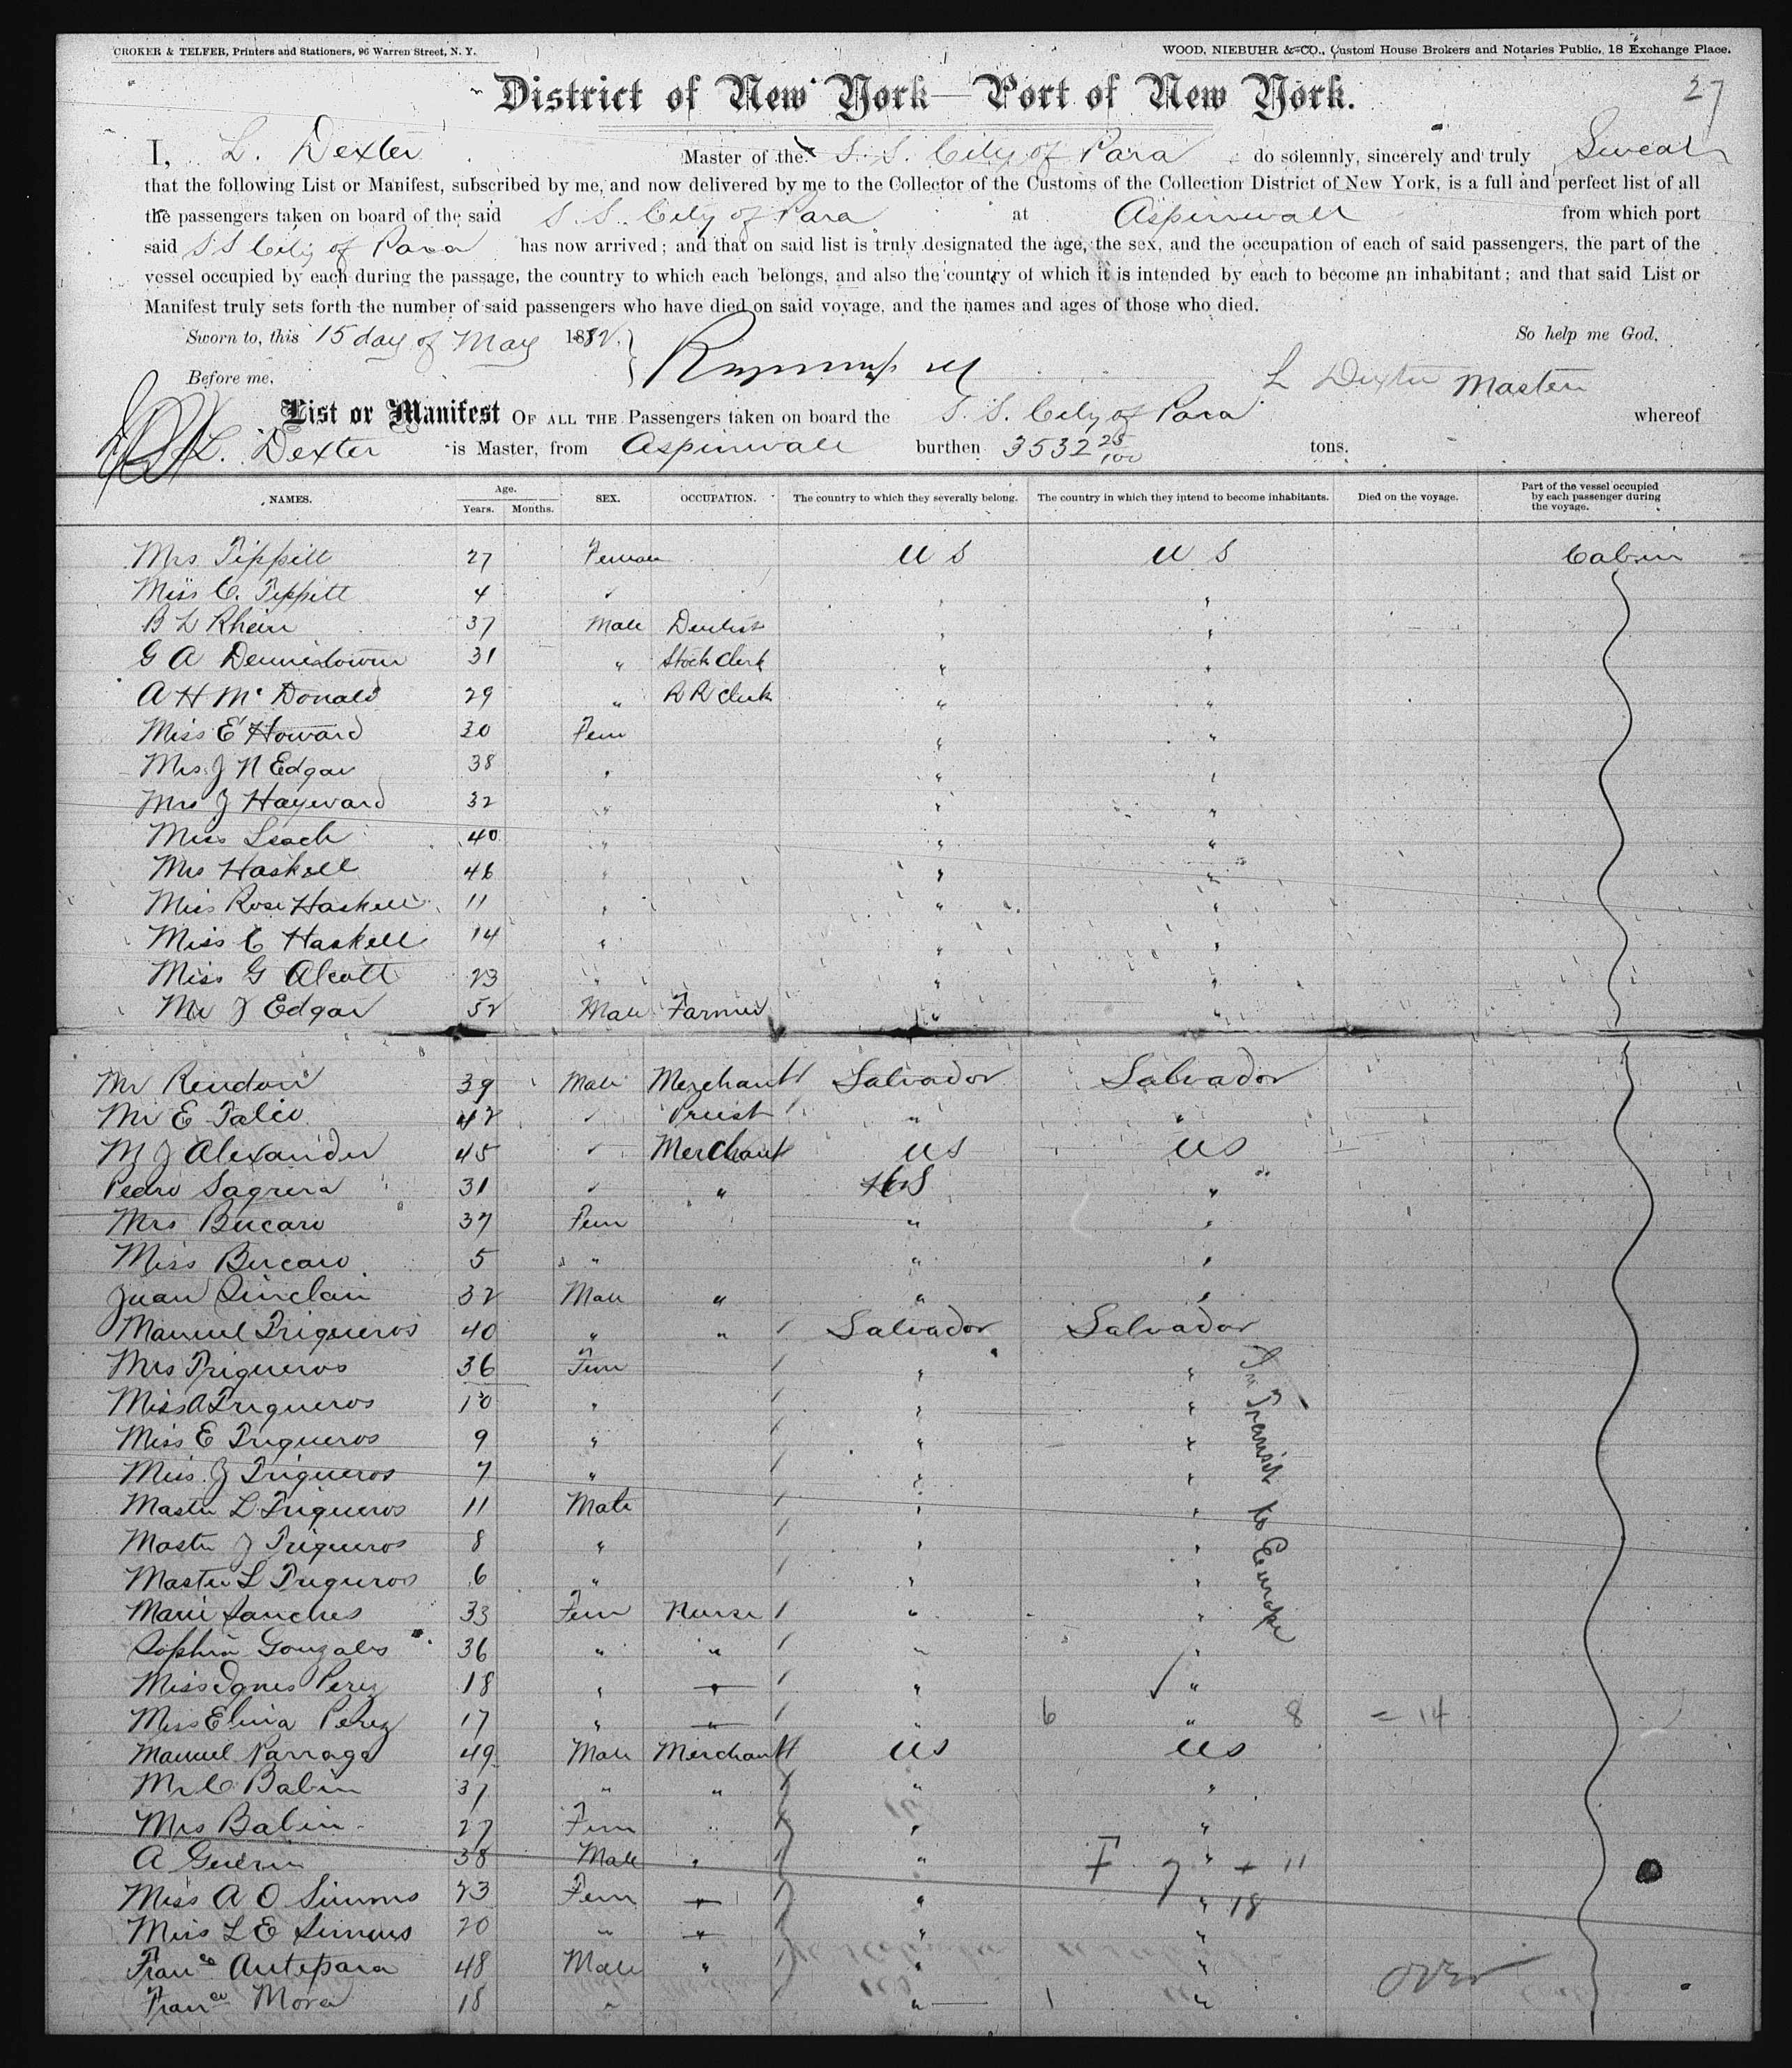 CROKER & TELFER, Printers and Stationers, 96 Warren Street, N. Y.
WOOD, NIEBUHR & CO., Custom House Brokers and Notaries Public, 18 Exchange Place.
District of New York—Port of New York.
27
I, L. Dexter Master of the S. S. City of Para do solemnly, sincerely and truly Swear
that the following List or Manifest, subscribed by me, and now delivered by me to the Collector of the Customs of the Collection District of New York, is a full and perfect list of all
the passengers taken on board of the said S. S. City of Para at Aspinwall from which port
said S S City of Para has now arrived; and that on said list is truly designated the age, the sex, and the occupation of each of said passengers, the part of the
vessel occupied by each during the passage, the country to which each belongs, and also the country of which it is intended by each to become an inhabitant; and that said List or
Manifest truly sets forth the number of said passengers who have died on said voyage, and the names and ages of those who died.
Sworn to, this 15 day of May 1882. So help me God,
Before me, L Dexter Master
List or Manifest OF ALL THE Passengers taken on board the S. S. City of Para whereof
L. Dexter is Master, from Aspinwall burthen 3532 25/100 tons.
NAMES. Age. Years. Months. SEX. OCCUPATION. The country to which they severally belong. The country in which they intend to become inhabitants. Died on the voyage. Part of the vessel occupied by each passenger during the voyage.
Mrs Tippitt 27 Female U S U S Cabin
Miss C. Tippitt 4 " " "
B L Rhein 37 Male Dentist " "
G A Dennistown 31 " Stock Clerk " "
A H McDonald 29 " R R Clerk " "
Miss E Howard 30 Fem " "
Mrs J N Edgar 38 " " "
Mrs J Hayward 32 " " "
Miss Leach 40 " " "
Mrs Haskell 46 " " "
Miss Rose Haskell 11 " " "
Miss C Haskell 14 " " "
Miss G Alcott 23 " " "
Mr J Edgar 52 Male Farmer " "
Mr Rendon 39 Male Merchant Salvador Salvador
Mr E Talio 42 " Priest " "
M J Alexander 45 " Merchant US US
Pedro Sagrera 31 " " US "
Mrs Bucaro 37 Fem " "
Miss Bucaro 5 " " "
Juan Sinclair 32 Male " " "
Manuel Trigueros 40 " " Salvador Salvador
Mrs Trigueros 36 Fem " "
Miss A Trigueros 10 " " "
Miss E Trigueros 9 " " "
Miss J Trigueros 7 " " "
Master L Trigueros 11 Male " "
Master J Trigueros 8 " " "
Master L Trigueros 6 " " "
In Transit to Europe
Marie Sanches 33 Fem Nurse " "
Sophia Gonzales 36 " " " "
Miss Ignes Perez 18 " " " "
Miss Elina Perez 17 " " " 6 " 8 = 14
Manuel Parraga 49 Male Merchant US US
Mr C Babin 37 " " " "
Mrs Babin 27 Fem " " "
A Guerin 38 Male " " F 7 " + 11
Miss A O Simms 23 Fem " " " 18
Miss L E Simms 20 " " " "
Franco Antepara 48 Male " " " over
Franco Mora 18 " " 1 "